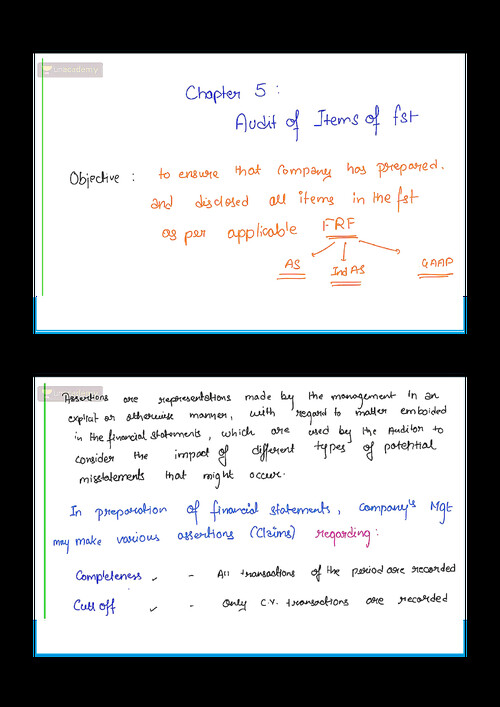 unacademy
Chapter 5 :
Audit of Items of fst
Objective : to ensure that Company has prepared.
and disclosed all items in the fst
as per applicable FRF
AS Ind AS GAAP
unacademy
Assertions are representations made by the management in an
explicit or otherwise manner, with regard to matter emboided
in the financial statements, which are used by the Auditor to
consider the impact of different types of potential
misstatements that might occur.
In preparation of financial statements, Company's Mgt
may make various assertions (Claims) regarding :
Completeness ✓ - All transactions of the period are recorded
Cutt off ✓ - Only C.Y. transactions are recorded